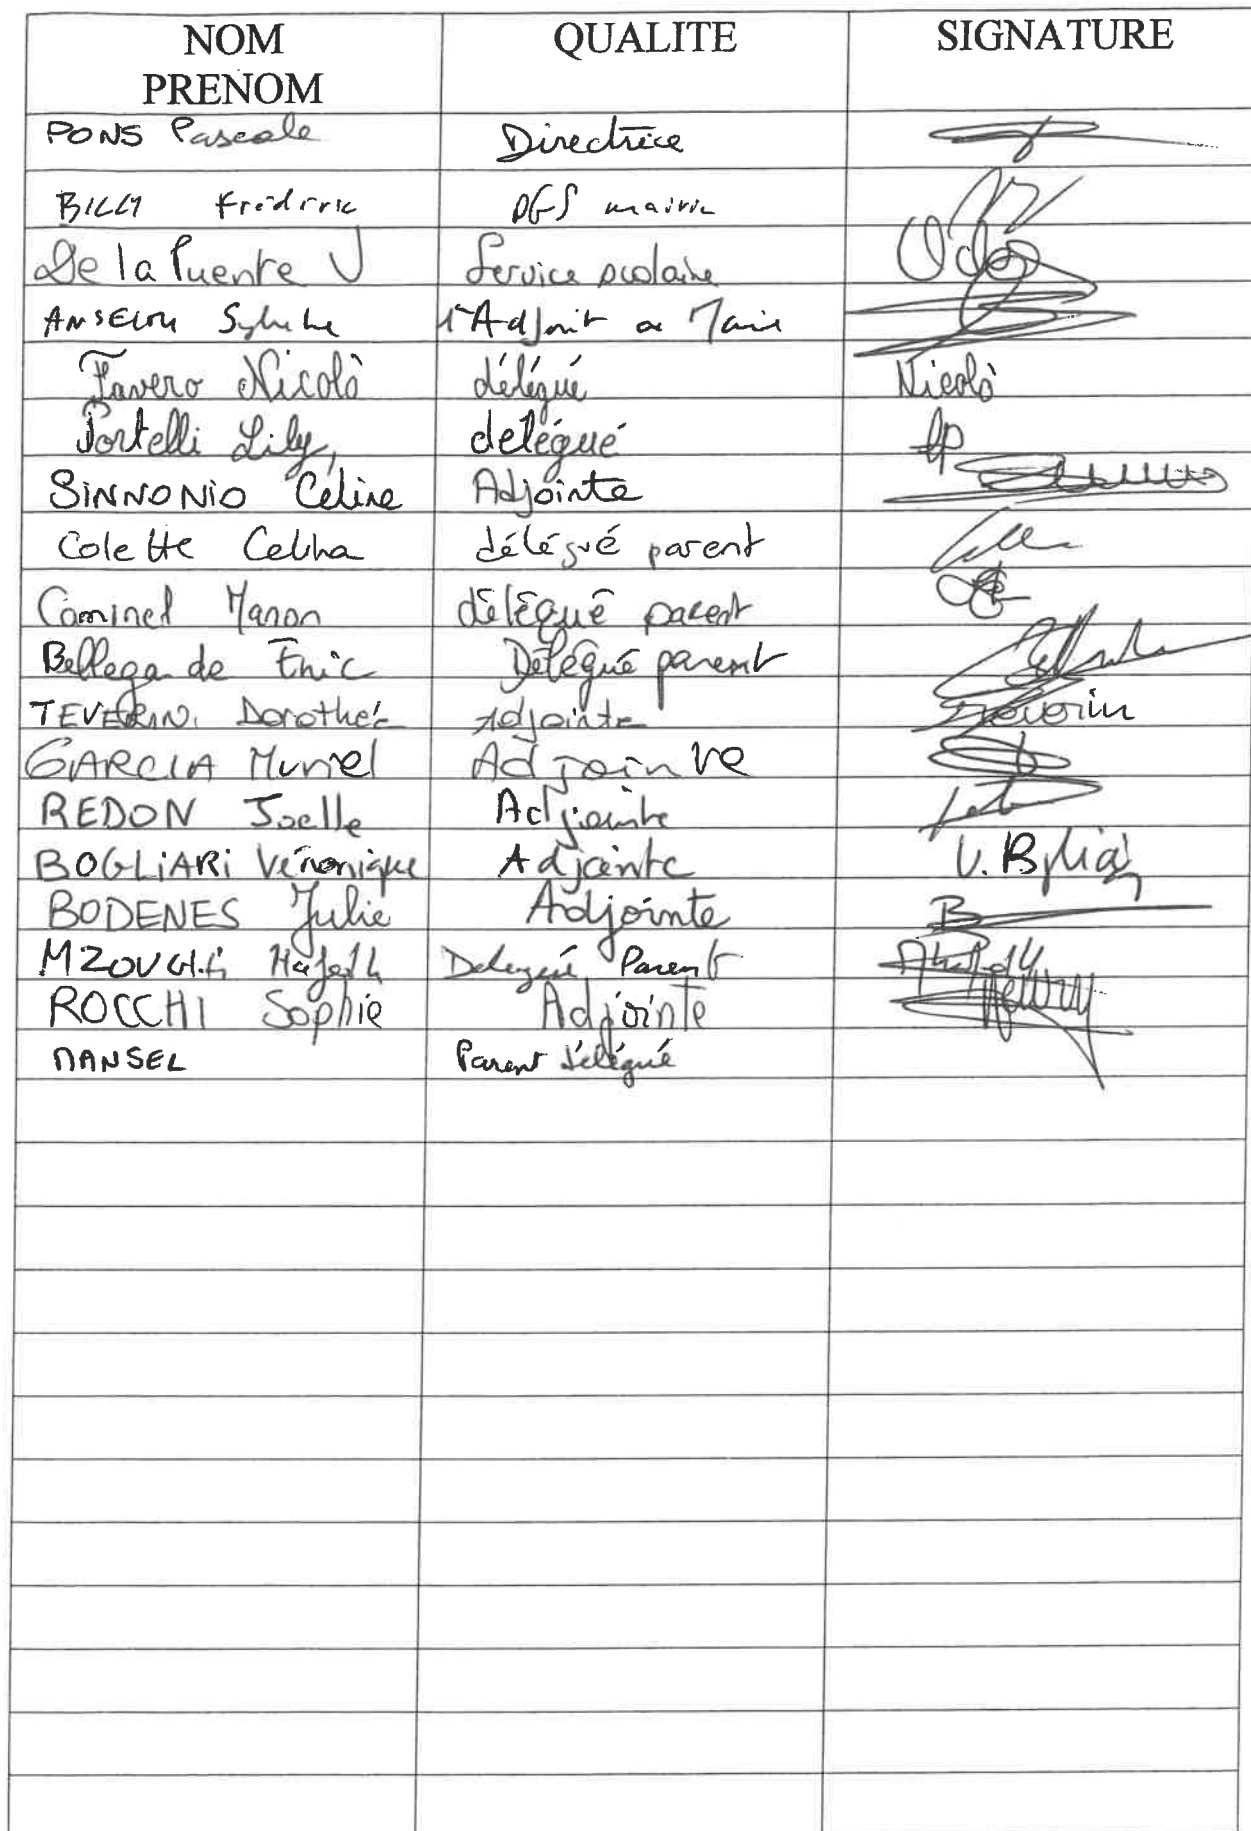 NOM QUALITE SIGNATURE
PRENOM
PONS Pascale Directrice
BILLY Frédéric DGS mairie
De la Puente V Service scolaire
Sylvette 1er Adjoint au Maire
Favero Nicolò délégué Nicolò
Portelli Lily, delégué LP
SINNONIO Céline Adjointe
Colette Celina délégué parent
Caminel Manon délégué parent
Bellegarde Eric Délégué parent
TEVERINI Dorothée Adjointe
GARCIA Muriel Adjointe
REDON Joelle Adjointe
BOGLIARI Véronique Adjointe V.
BODENES Julie Adjointe B
MZOUGHI Hafedh Delegué Parent
ROCCHI Sophie Adjointe
MANSEL Parent délégué